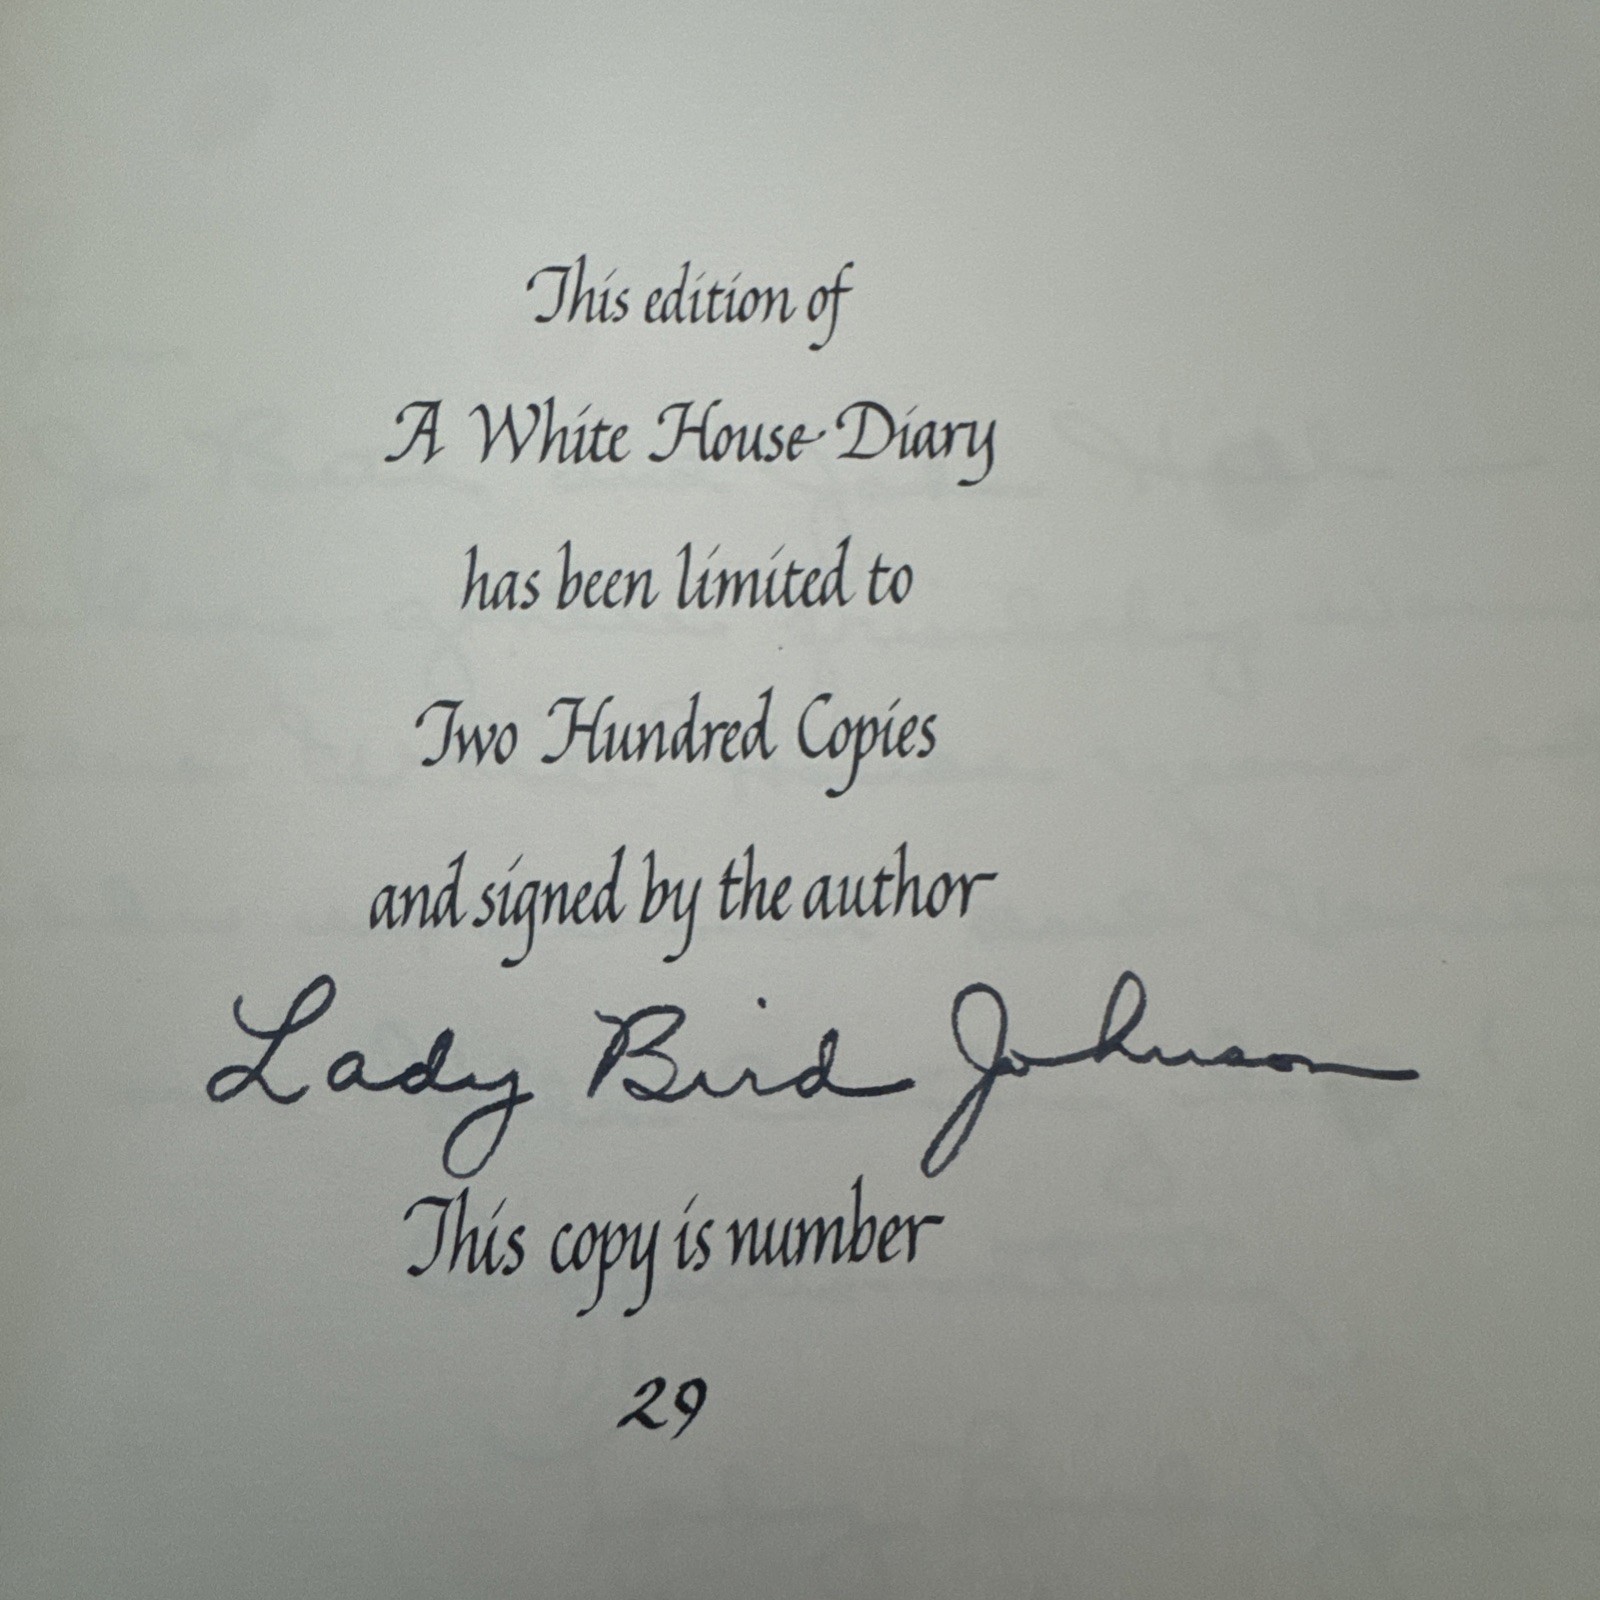 This edition of
A White House Diary
has been limited to
Two Hundred Copies
and signed by the author
Lady Bird Johnson
This copy is number
29